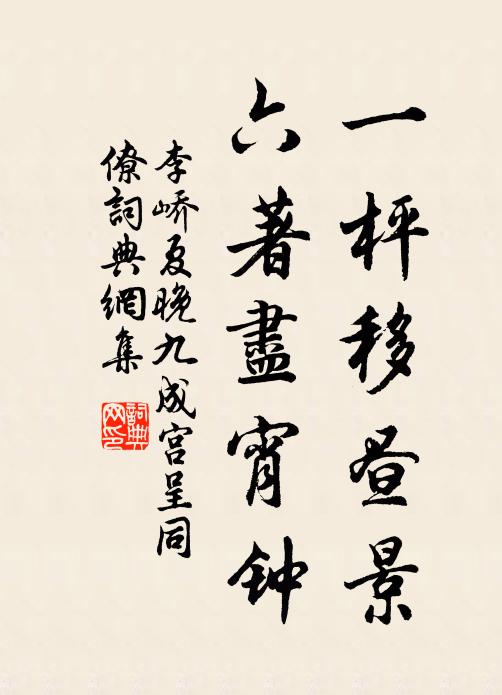 一枰移昼景
六著盡宵钟
李峤夏晚九成宫呈同
僚詞典網集
詞典
网印